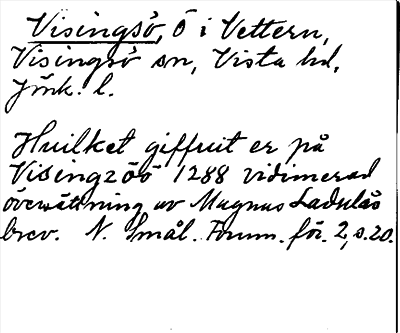 Visingsö, Ö i Vettern,
Visingsö sn, Vista hd,
Jönk. l.
Huilket giffuit er på
Visingzöö 1288 vidimerad
översättning av Magnus Ladulås
brev. N. Smål. Fornm. för. 2, s. 20.